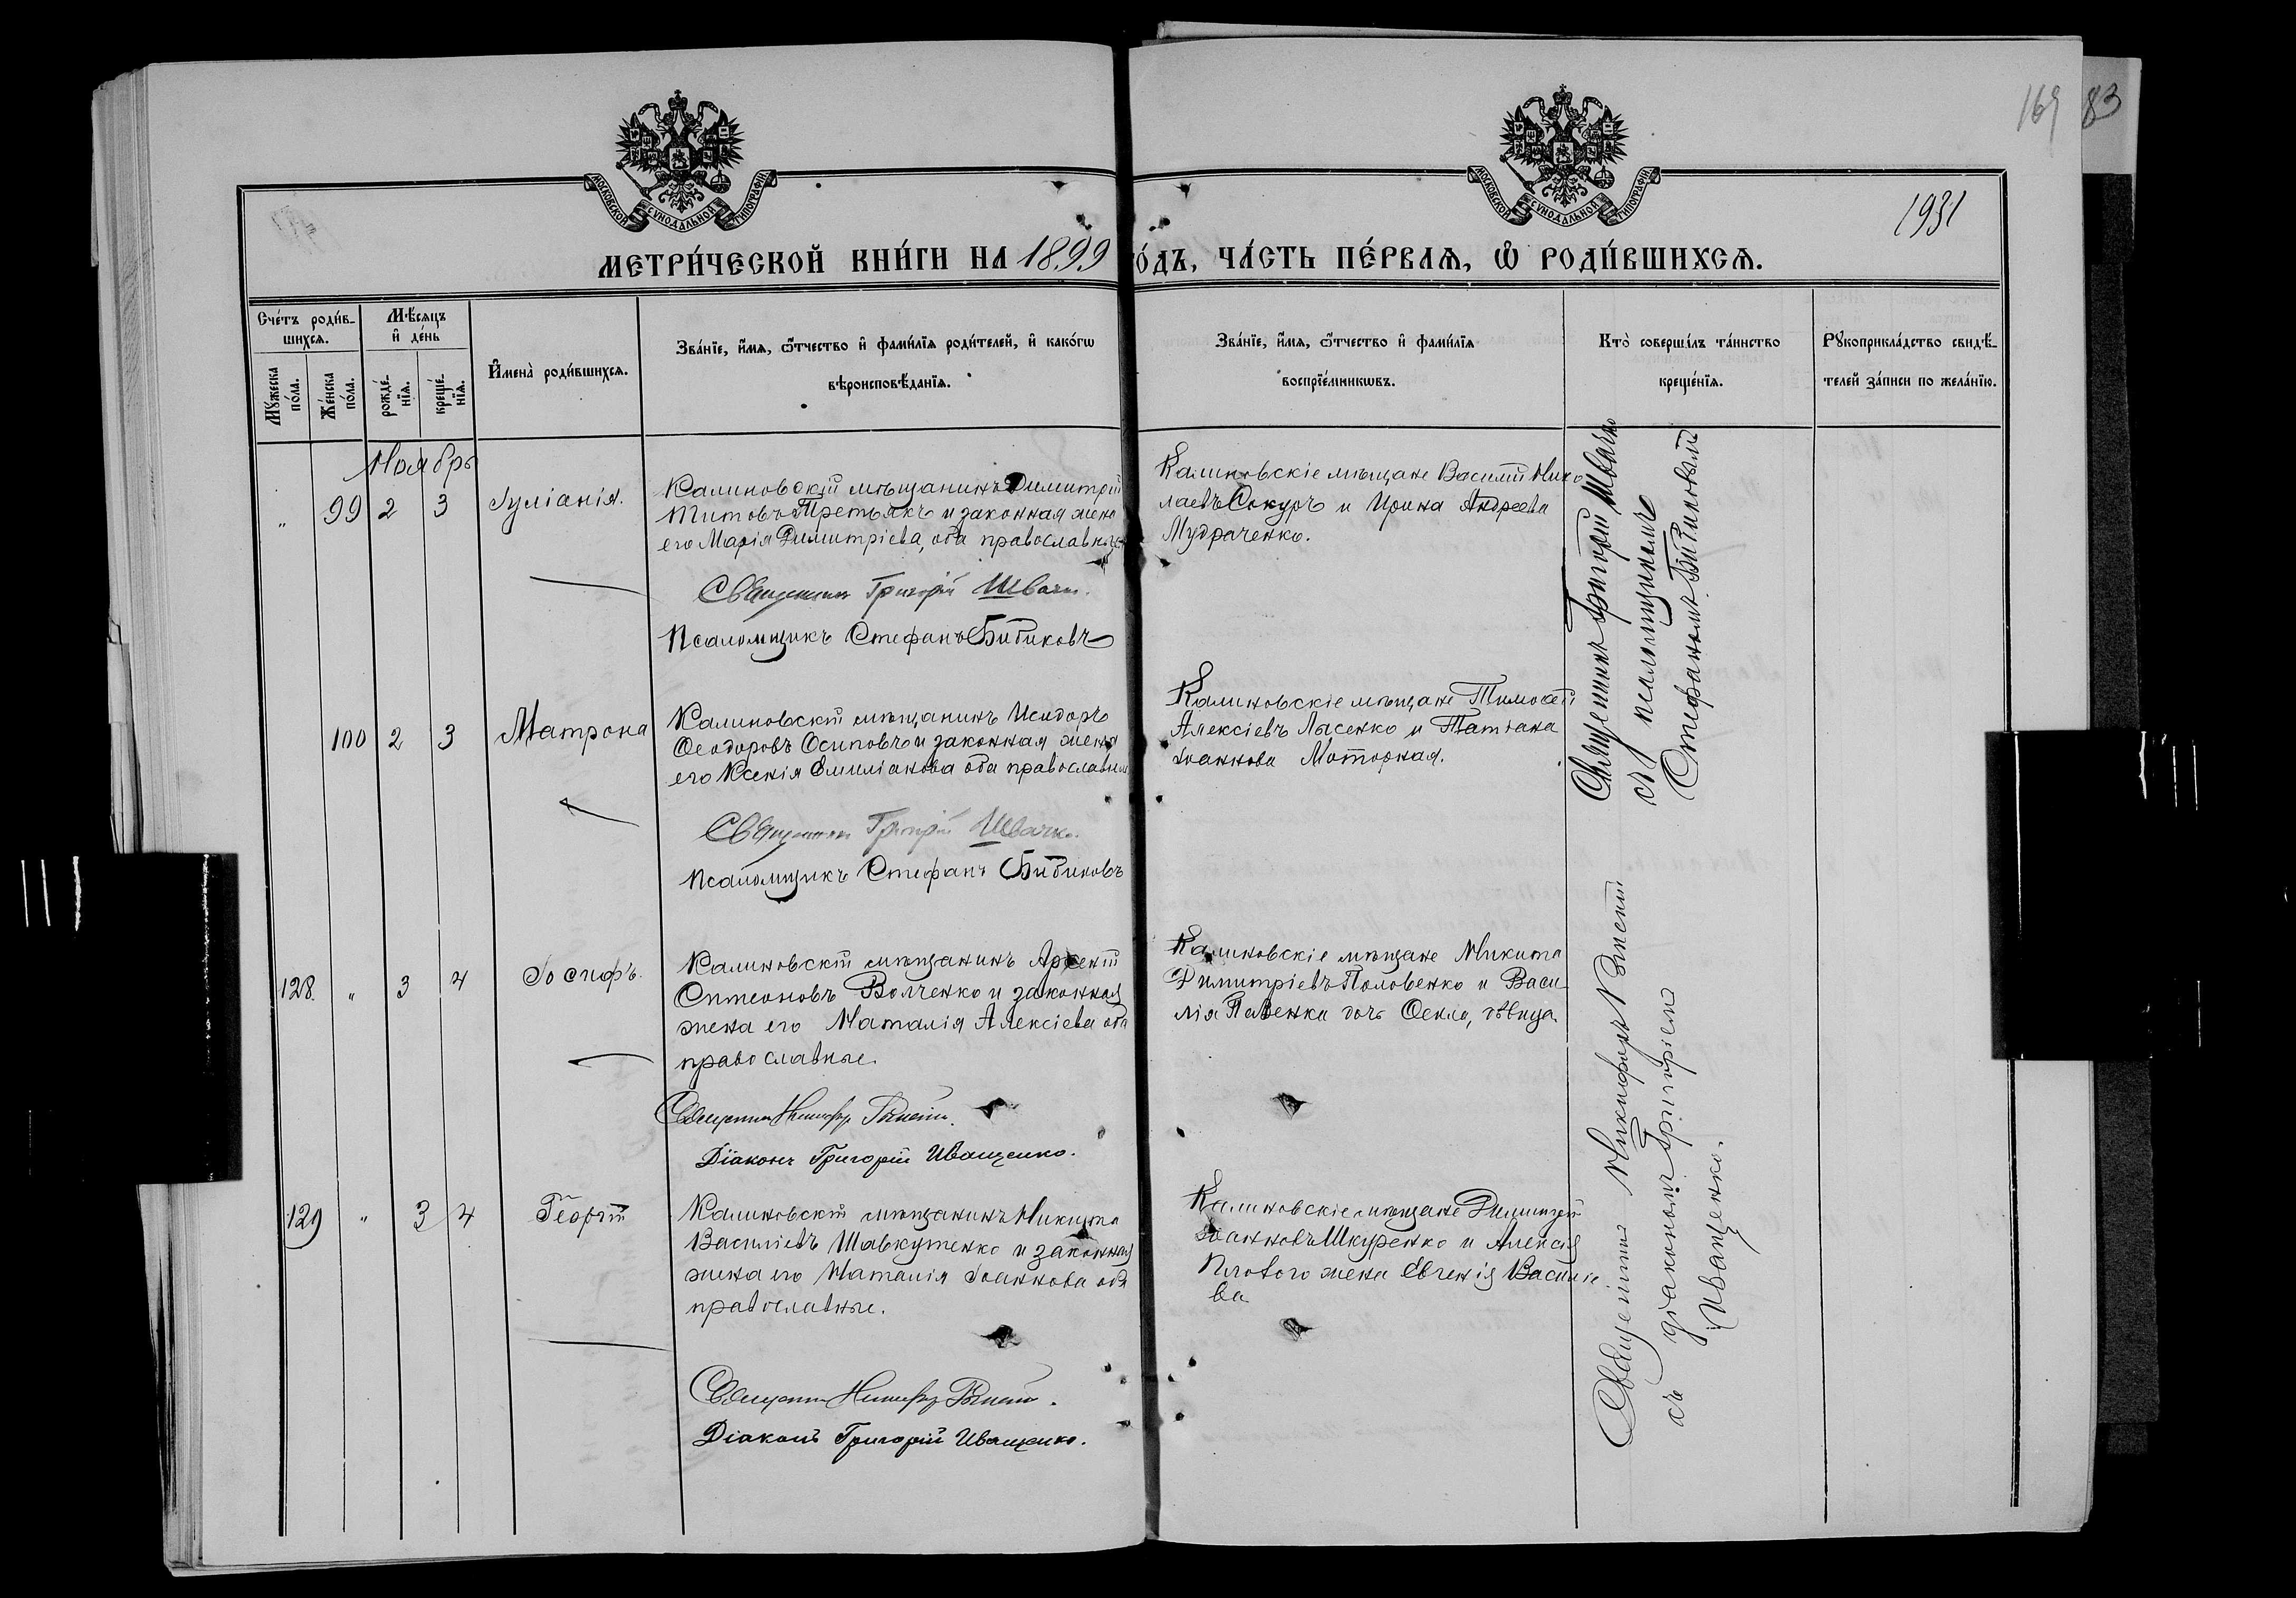 169 83
1931
МОСКОВСКОЙ СѴНОДАЛЬНОЙ ТИПОГРАФІИ
МОСКОВСКОЙ СѴНОДАЛЬНОЙ ТИПОГРАФІИ
МЕТРИ́ЧЕСКОЙ КНИ́ГИ НА 1899 ГО́ДЪ, ЧА́СТЬ ПЕ́РВАЯ, Ѽ РОДИ́ВШИХСЯ.
Сче́тъ роди́в-
шихся.
Мꙋ́жеска
по́ла.
Же́нска
по́ла.
Мѣ́сяцъ
и҆ де́нь
рожде́-
нїя.
креще́-
нїя.
И҆мена̀ роди́вшихся.
Зва́нїе, и҆́мя, ѻ҆́тчество и҆ фами́лїя роди́телей, и҆ како́гѡ
вѣроисповѣ́данїя.
Зва́нїе, и҆́мя, ѻ҆́тчество и҆ фами́лїя
воспрїе́мникѡвъ.
Кто̀ соверши́лъ та́инство
креще́нїя.
Рꙋкоприкла́дство свидѣ́-
телей за́писи по жела́нїю.
Ноябрь
" 99 2 3 Іуліанія.
Калиновскій мѣщанинъ Димитрій
Титовъ Третьякъ и законная жена
его Марія Димитріева, оба православные
Священникъ Григорій Швачко.
Псаломщикъ Стефанъ Бибиковъ
Калиновскіе мѣщане Василій Нико
лаевъ Сокуръ и Ирина Андреева
Мудраченко.
Священникъ Григорій Швачко
съ псаломщикомъ
Стефаномъ Бибиковымъ
100 2 3 Матрона
Калиновскій мѣщанинъ Исидоръ
Ѳеодоровъ Осиповъ и законная жена
его Ксенія Емиліанова оба православные
Священникъ Григорій Швачко.
Псаломщикъ Стефанъ Бибиковъ
Калиновскіе мѣщане Тимоѳей
Алексіевъ Лысенко и Татіана
Іоаннова Моторная.
128. " 3 4 Іосифъ.
Калиновскій мѣщанинъ Арсеній
Симеоновъ Волченко и законная
жена его Наталія Алексіева оба
православные.
Священникъ Никифоръ
Діаконъ Григорій Иващенко.
Калиновскіе мѣщане Никита
Димитріевъ Половенко и Васи
лія дочь Ѳекла, дѣвица.
Священникъ Никифоръ
съ діакономъ Григоріемъ
Иващенко.
129 " 3 4 Георгій
Калиновскій мѣщанинъ Никита
Василіевъ Шавкутенко и законная
жена его Наталія Іоаннова оба
православные.
Священникъ Никифоръ
Діаконъ Григорій Иващенко.
Калиновскіе мѣщане Димитрій
Іоанновъ Шкуренко и Алексія
жена Евгенія Василіе
ва